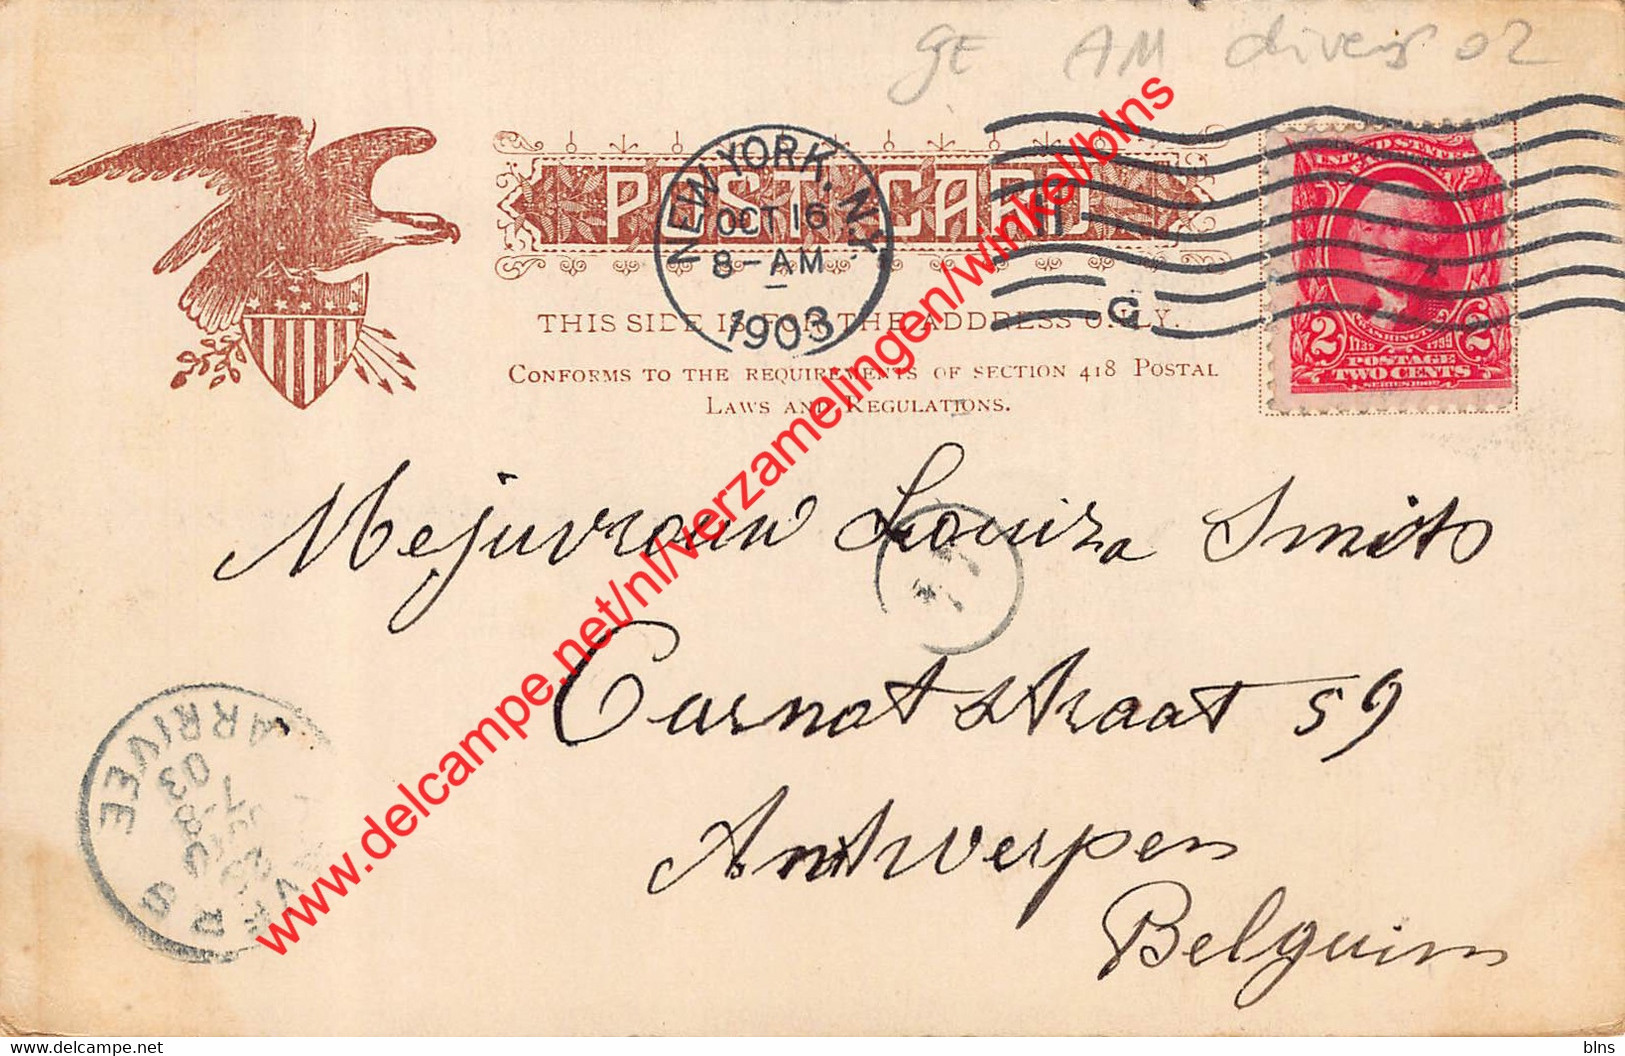 GE AM divers 02
POST CARD
NEW YORK, N.Y.
OCT 16
8-AM
1903
G
THIS SIDE IS FOR THE ADDDRESS ONLY.
CONFORMS TO THE REQUIREMENTS OF SECTION 418 POSTAL
LAWS AND REGULATIONS.
2 WASHINGTON 2
1732 1799
POSTAGE
TWO CENTS
SERIES 1902
Mejuvrouw Louiza Smits
Carnotstraat 59
Antwerpen
Belguim
ARRIVEE
03
www.delcampe.net/nl/verzamelingen/winkel/blns
https://www.delcampe.net/nl/verzamelingen/winkel/blns
blns